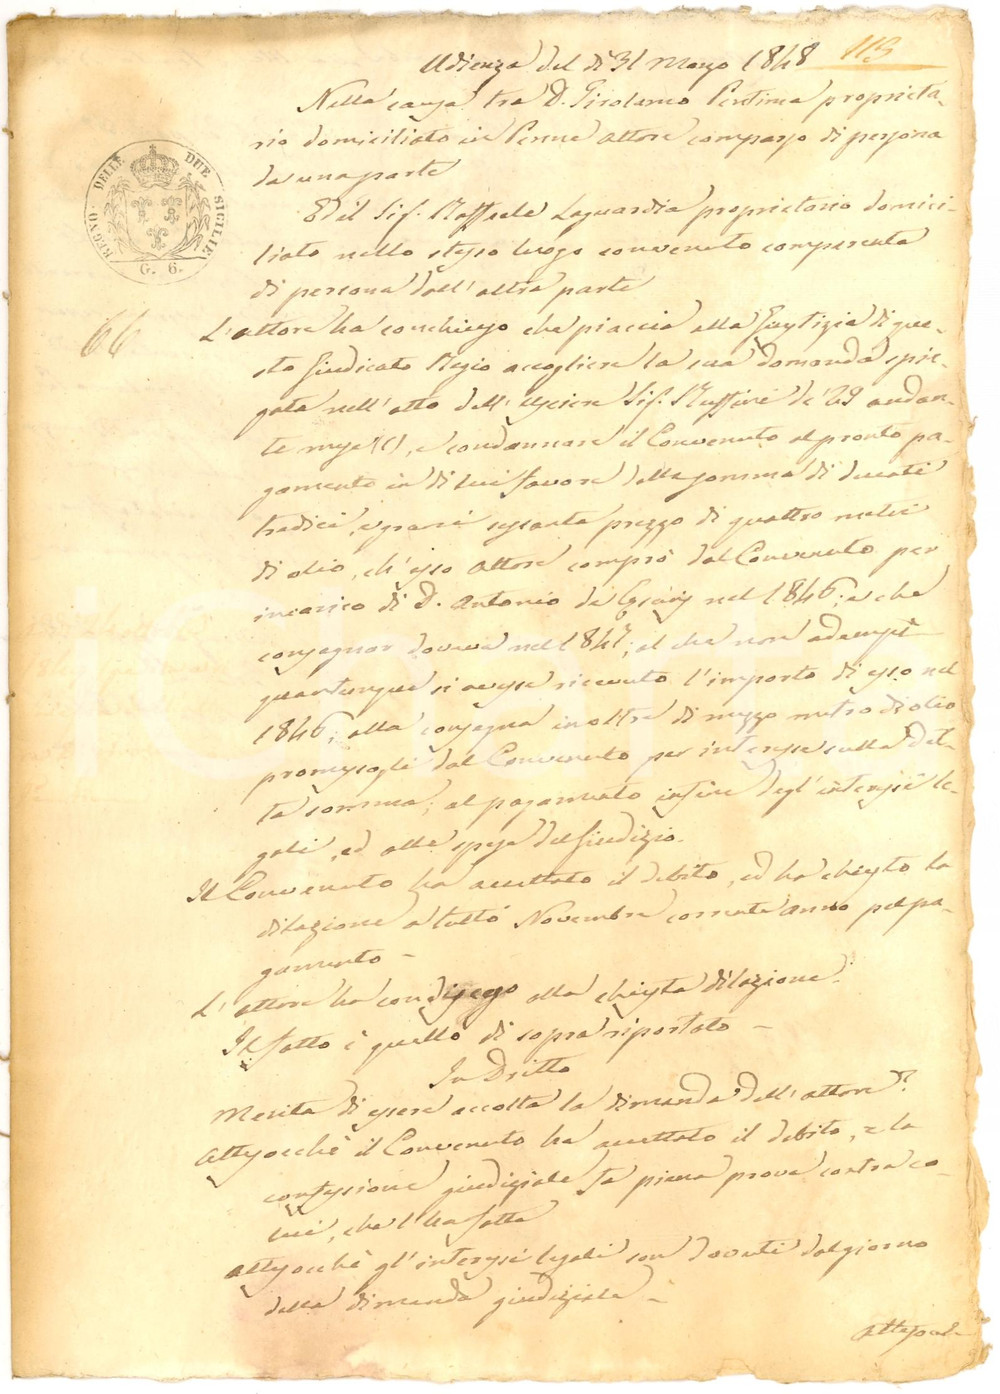 Udienza del dì 31 Marzo 1848
113
Nella causa tra D. Girolamo Pentima proprieta-
rio domiciliato in Penne attore comparso di persona
da una parte
Ed il Sig. Raffaele Laguardia proprietario domici-
liato nello stesso luogo convenuto comparente
di persona dall'altra parte
REGNO DELLE DUE SICILIE
G. 6.
66
L'attore ha conchiuso che piaccia alla Giustizia di que-
sto Giudicato Regio accogliere la sua domanda spie-
gata nell'atto dell'Usciere Sig. de' 29 andan-
te mese, e condannare il Convenuto al pronto pa-
gamento in di lui favore della somma di ducati
tredici, e grana sessanta prezzo di quattro metri
di olio, ch'esso attore comprò dal Convenuto per
incarico di D. Antonio de Cesaris nel 1846; e che
consegnar doveva nel 1847; al che non adempì
quantunque si avesse ricevuto l'importo di esso nel
1846; alla consegna inoltre di mezzo metro di olio
promessogli dal Convenuto per interesse sulla det-
ta somma; al pagamento infine degl'interessi le-
gali, ed alle spese del Giudizio.
Il Convenuto ha accettato il debito, ed ha chiesto la
dilazione a tutto Novembre corrente anno pel pa-
gamento -
L'attore ha condisceso alla chiesta dilazione.
Il fatto è quello di sopra riportato -
In Dritto
Merita di essere accolta la dimanda dell'attore?
Attesocchè il Convenuto ha accettato il debito, e la
confessione giudiziale fa piena prova contra co-
lui, che l'ha fatta
Attesocchè gl'interessi legali son dovuti dal giorno
della dimanda giudiziale -